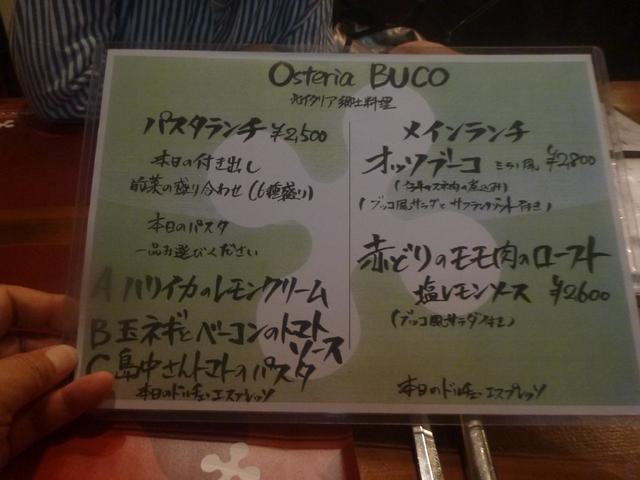 Osteria BUCO
北イタリア郷土料理
パスタランチ ¥2,500
本日の付き出し
前菜の盛り合わせ(6種盛り)
本日のパスタ
一品お選びください
A ハリイカのレモンクリーム
B 玉ネギとベーコンのトマト
ソース
C 島中さんトマトのパスタ
本日のドルチェ、エスプレッソ
メインランチ
オッソブーコ ミラノ風 ¥2,800
(仔牛のスネ肉の煮込み)
(ブッコ風サラダとサフランリゾット付き)
赤どりのモモ肉のロースト
塩レモンソース ¥2600
(ブッコ風サラダ付き)
本日のドルチェ、エスプレッソ